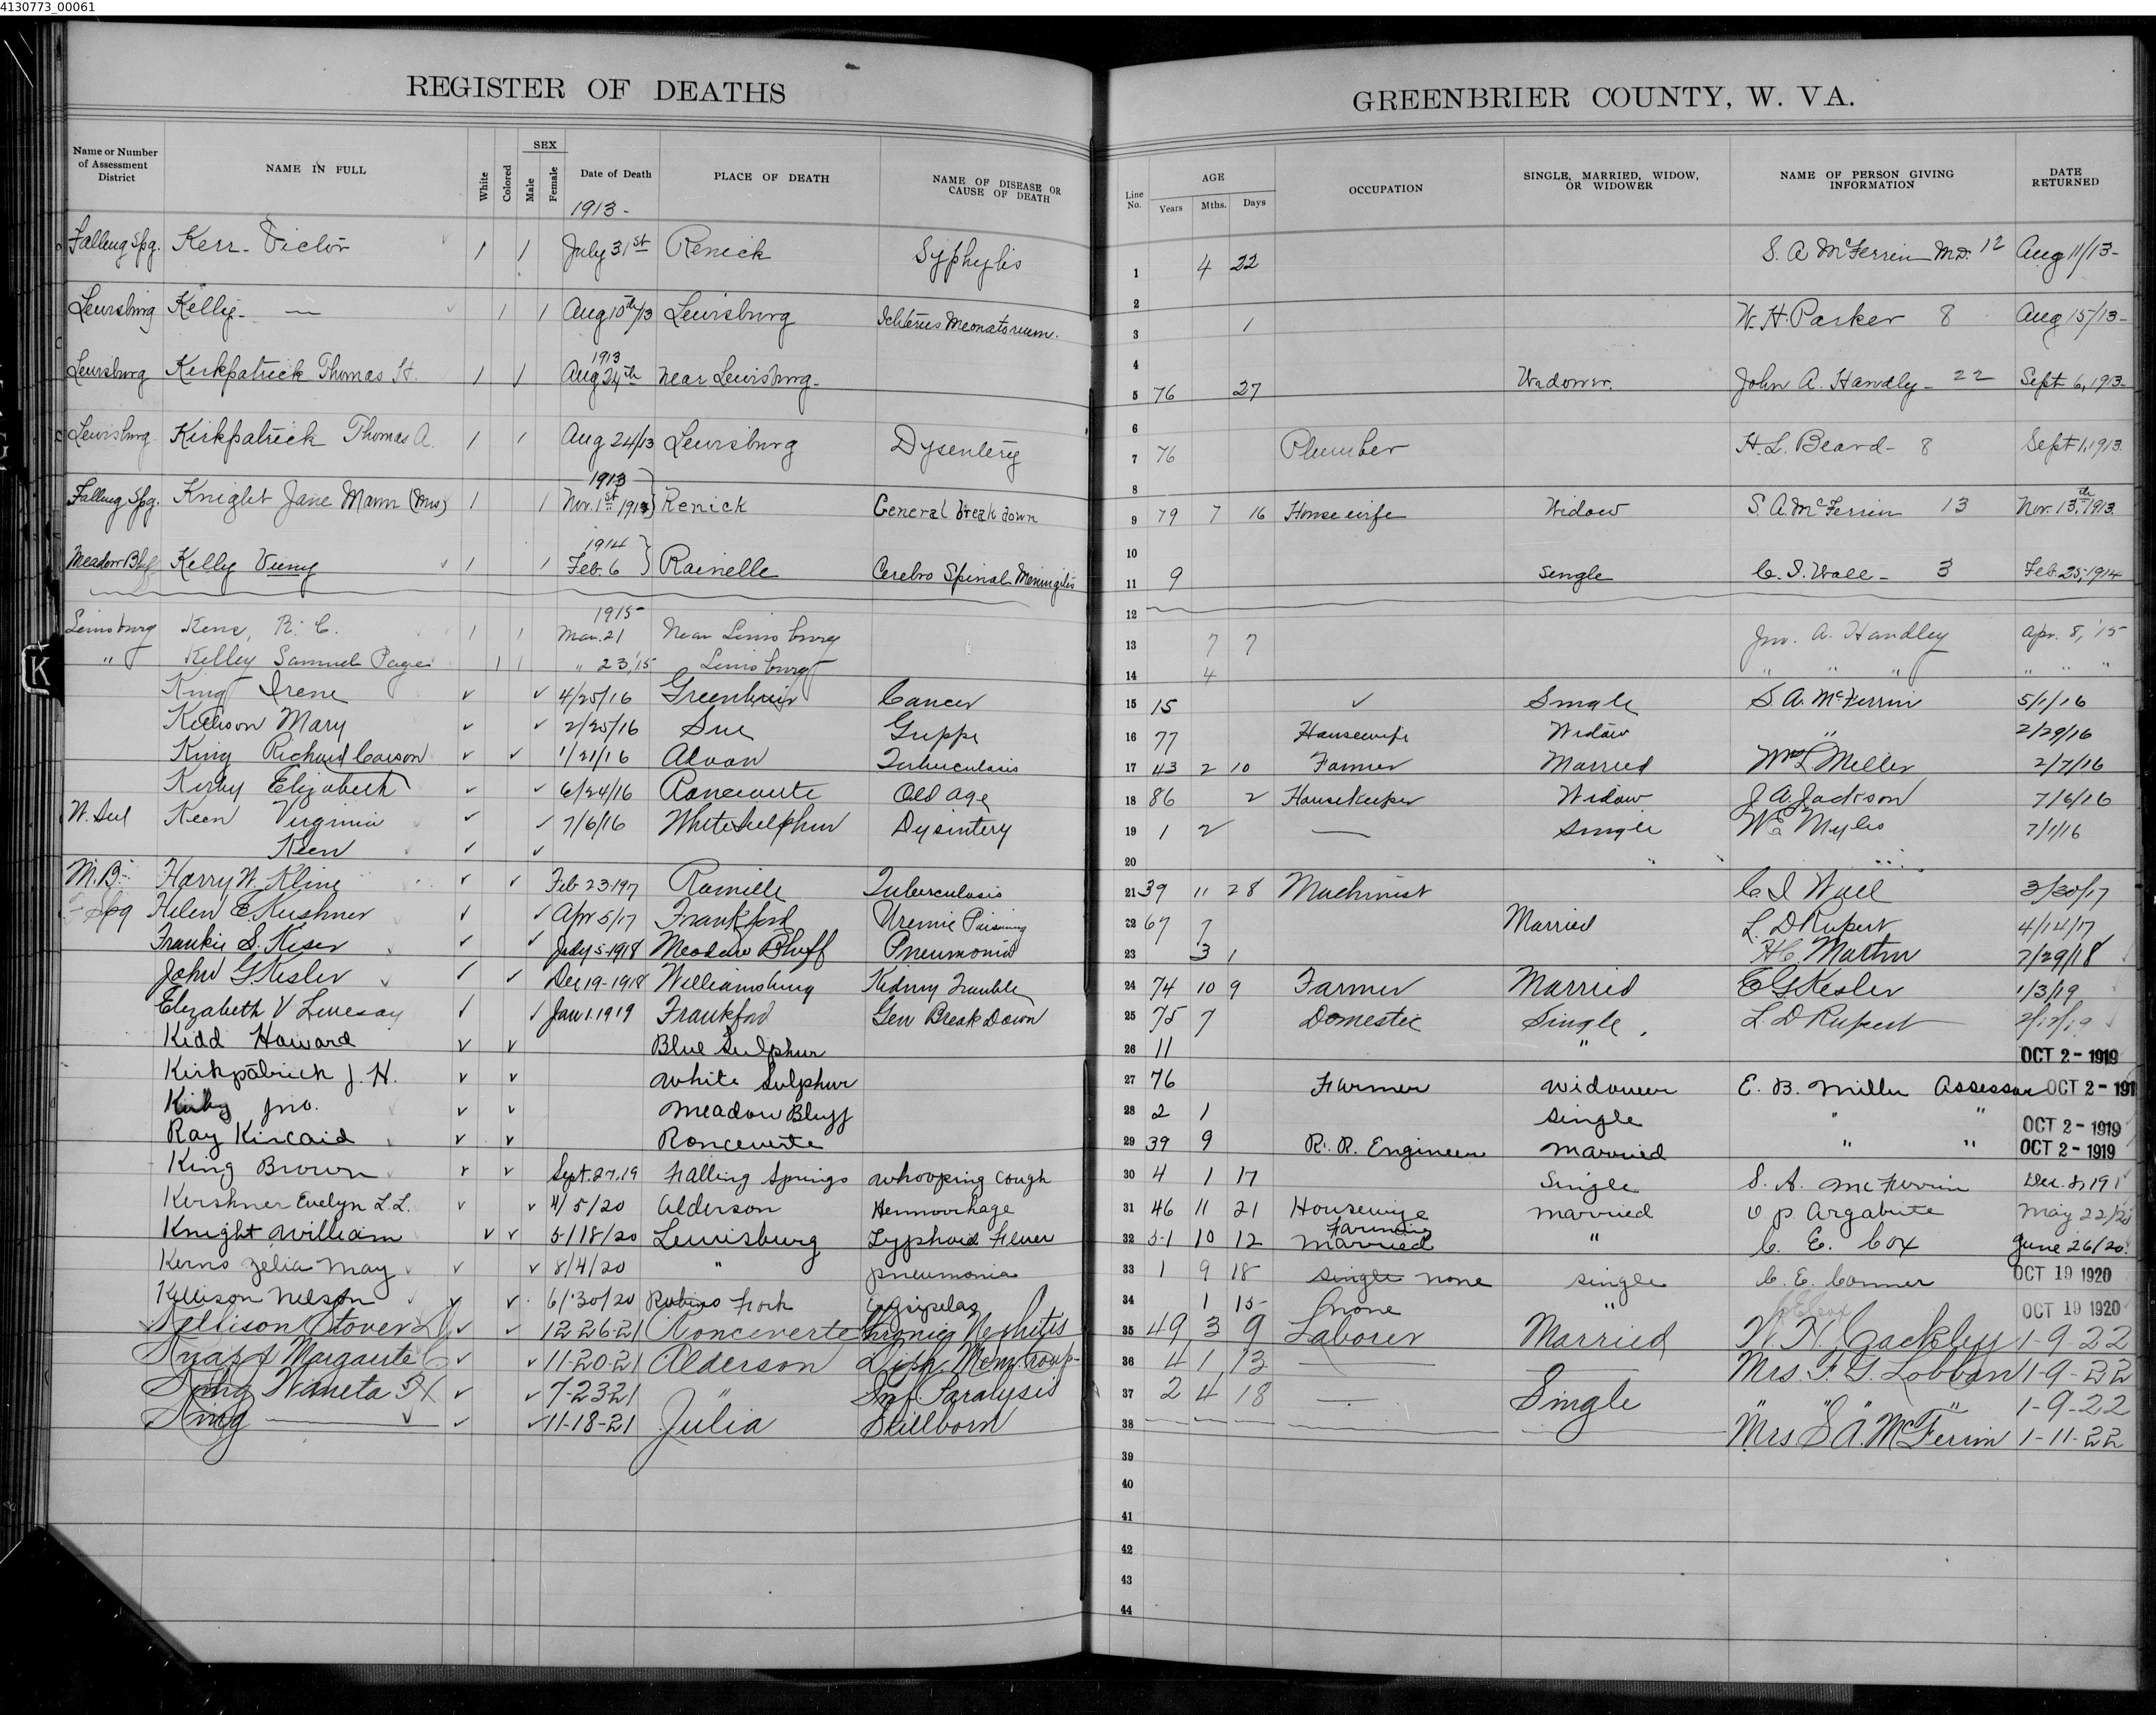 4130773_00061
REGISTER OF DEATHS
GREENBRIER COUNTY, W. VA.
Name or Number of Assessment District NAME IN FULL White Colored SEX Male Female Date of Death PLACE OF DEATH NAME OF DISEASE OR CAUSE OF DEATH Line No. AGE Years Mths. Days OCCUPATION SINGLE, MARRIED, WIDOW, OR WIDOWER NAME OF PERSON GIVING INFORMATION DATE RETURNED
1913-
Falling Spg. Kerr- Victor 1 1 July 31st Renick Syphylis 1 4 22 S. A. McFerrin M.D. 12 Aug 11/13-
2
Lewisburg Kelly- — 1 1 Aug 10th/13 Lewisburg Ichterus Neonatorium. 3 1 W. H. Parker 8 Aug 15/13-
4
Lewisburg Kirkpatrick Thomas H. 1 1 1913 Aug 24th near Lewisburg- 5 76 27 Widower. John A. Handly- 22 Sept 6, 1913-
6
Lewisburg Kirkpatrick Thomas A. 1 1 Aug 24/13 Lewisburg Dysentery 7 76 Plumber H. L. Beard- 8 Sept 1, 1913.
8
Falling Spg. Knight Jane Mann (Mrs) 1 1 1913 Nov. 1st 1913 Renick General break down 9 79 7 16 Housewife Widow S. A. McFerrin 13 Nov. 13th, 1913.
10
Meadow Bluf Kelly Viemy 1 1 1914 Feb. 6 Rainelle Cerebro Spinal Meningitis 11 9 Single C. I. Wall- 3 Feb. 25, 1914
12
Lewisburg Kene, R. C. 1 1 1915 Mar. 21 Near Lewisburg 13 7 7 Jno. A. Handley Apr. 8, '15
" Kelley Samuel Page 1 1 " 23, '15 Lewisburg 14 4 " " " " " "
King Irene ✓ ✓ 4/25/16 Greenbrier Cancer 15 15 ✓ Single S. A. McFerrin 5/1/16
Kellison Mary ✓ ✓ 2/25/16 Sue Grippe 16 77 Housewife Widow " 2/29/16
King Richard Carson ✓ ✓ 1/21/16 Alvon Tuberculosis 17 43 2 10 Farmer Married Wm L Miller 2/7/16
Kirby Elizabeth ✓ ✓ 6/24/16 Ronceverte Old age 18 86 2 Housekeeper Widow J A Jackson 7/6/16
W. Sul Keen Virginia ✓ ✓ 7/6/16 White Sulphur Dysintery 19 1 2 — Single W E Myles 7/1/16
Keen ✓ ✓ 20
M. B. Harry W. Kline ✓ ✓ Feb 23-197 Rainelle Tuberculosis 21 39 11 28 Machinist C I Wall 3/30/17
F Spg Helen E. Kershner ✓ ✓ Apr 5/17 Frankford Uremic Poisoning 22 67 7 Married L. D Rupert 4/14/17
Frankie S. Keser ✓ ✓ July 5-1918 Meadow Bluff Pneumonia 23 3 1 H C. Martin 7/29/18
John G Kesler ✓ ✓ Dec 19-1918 Williamsburg Kidney Trouble 24 74 10 9 Farmer Married E G Kesler 1/3/19
Elizabeth V Livesay ✓ ✓ Jan 1. 1919 Frankford Gen Break Down 25 75 7 Domestic Single L D Rupert 2/12/19
Kidd Howard ✓ ✓ Blue Sulphur 26 11 " OCT 2 - 1919
Kirkpatrick J. H. ✓ ✓ White Sulphur 27 76 Farmer Widower E. B. Miller Assessor OCT 2 - 191
Kirby Jno. ✓ ✓ Meadow Bluff 28 2 1 Single " " OCT 2 - 1919
Ray Kincaid ✓ ✓ Ronceverte 29 39 9 R. R. Engineer Married " " OCT 2 - 1919
King Brown ✓ ✓ Sept. 27.19 Falling Springs Whooping Cough 30 4 1 17 Single S. A. McFerrin Dec. 8, 191
Kershner Evelyn L. L. ✓ ✓ 4/5/20 Alderson Hemmorrhage 31 46 11 21 Housewife married O. P. Argabrite May 22/20
Knight William ✓ ✓ 5/18/20 Lewisburg Typhoid Fever 32 51 10 12 Married Farming " C. E. Cox June 26/20.
Kerns Zelia May ✓ ✓ 8/4/20 " pneumonia 33 1 9 18 Single none single C. E. Conner OCT 19 1920
Kellison Nelson ✓ ✓ 6/30/20 Robins Fork Erysipelas 34 1 15 none " OCT 19 1920
Kellison Stover ✓ ✓ 12-26-21 Ronceverte Chronic Nephritis 35 49 3 9 Laborer Married W. H. Cackley 1-9-22
Knapp Margarete C ✓ ✓ 11-20-21 Alderson Diph. Mem. Croup- 36 4 1 13 — — Mrs. F. G. Lobban 1-9-22
Waneta ✓ ✓ 7-23-21 " Inf Paralysis 37 2 4 18 — Single " " " 1-9-22
King — ✓ ✓ 11-18-21 Julia Stillborn 38 — Mrs S. A. McFerrin 1-11-22
39
40
41
42
43
44
K